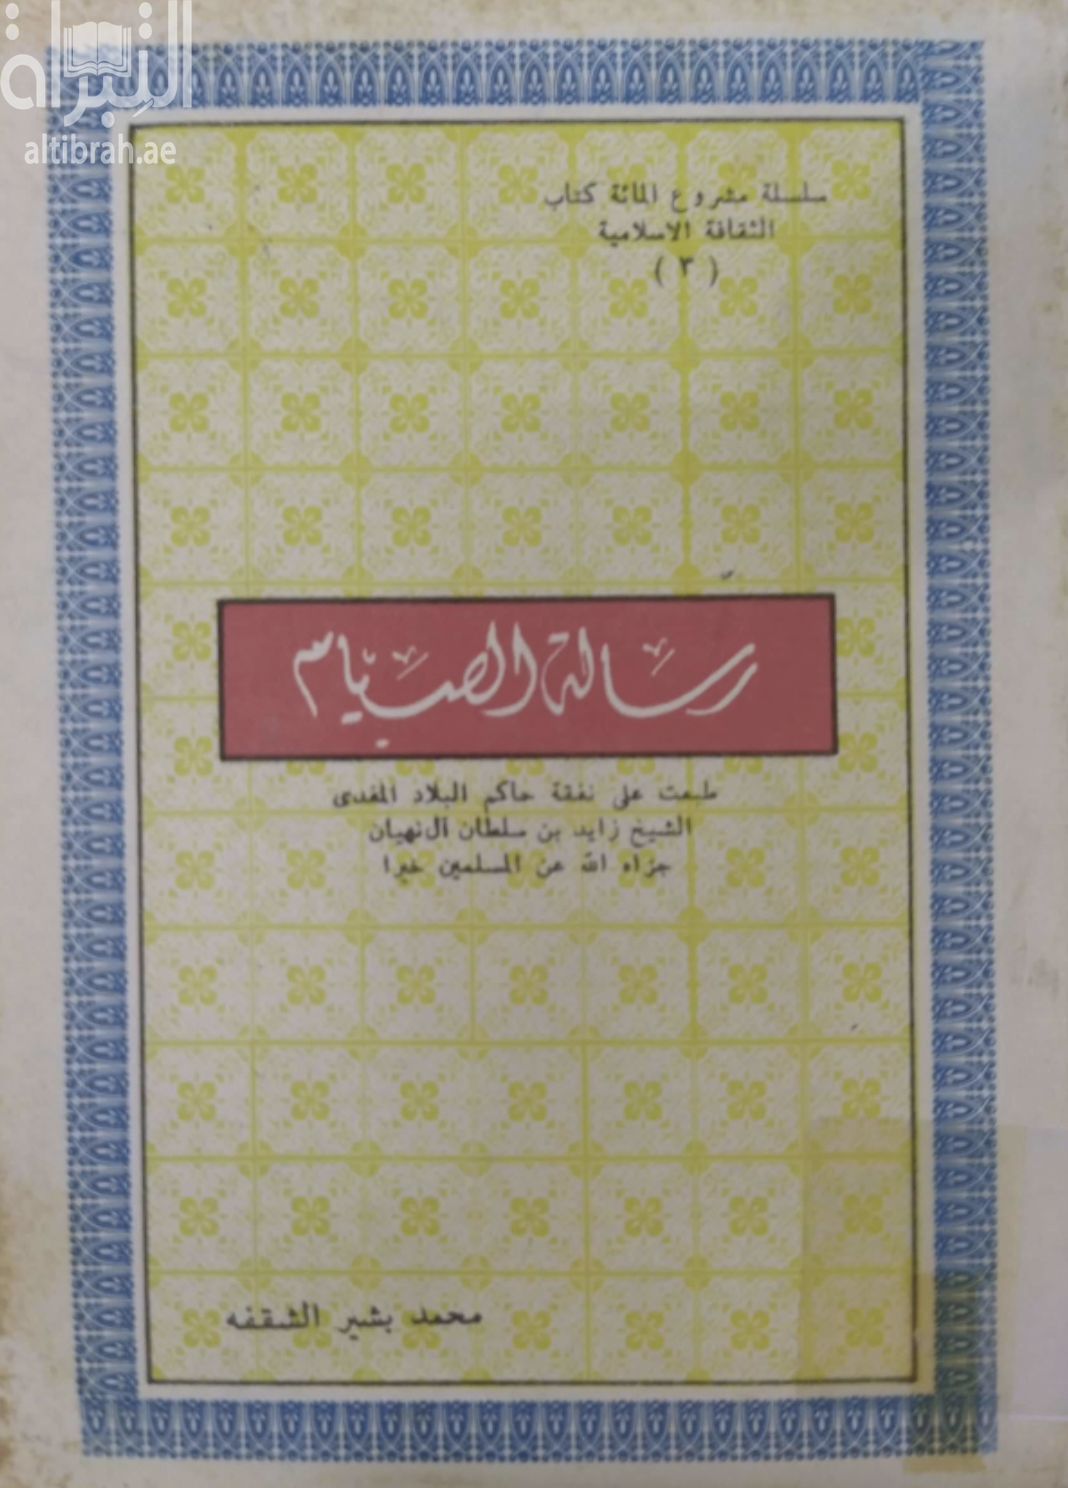 التبراة
altibrah.ae
سلسلة مشروع المائة كتاب
الثقافة الاسلامية
( ٣ )
رسالة الصيام
طبعت على نفقة حاكم البلاد المفدى
الشيخ زايد بن سلطان آل نهيان
جزاه الله عن المسلمين خيرا
محمد بشير الشقفه